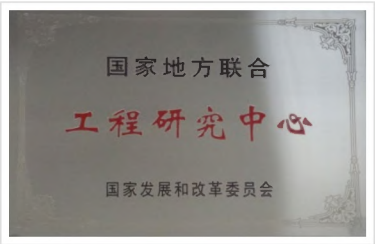 国家地方联合
工程研究中心
国家发展和改革委员会